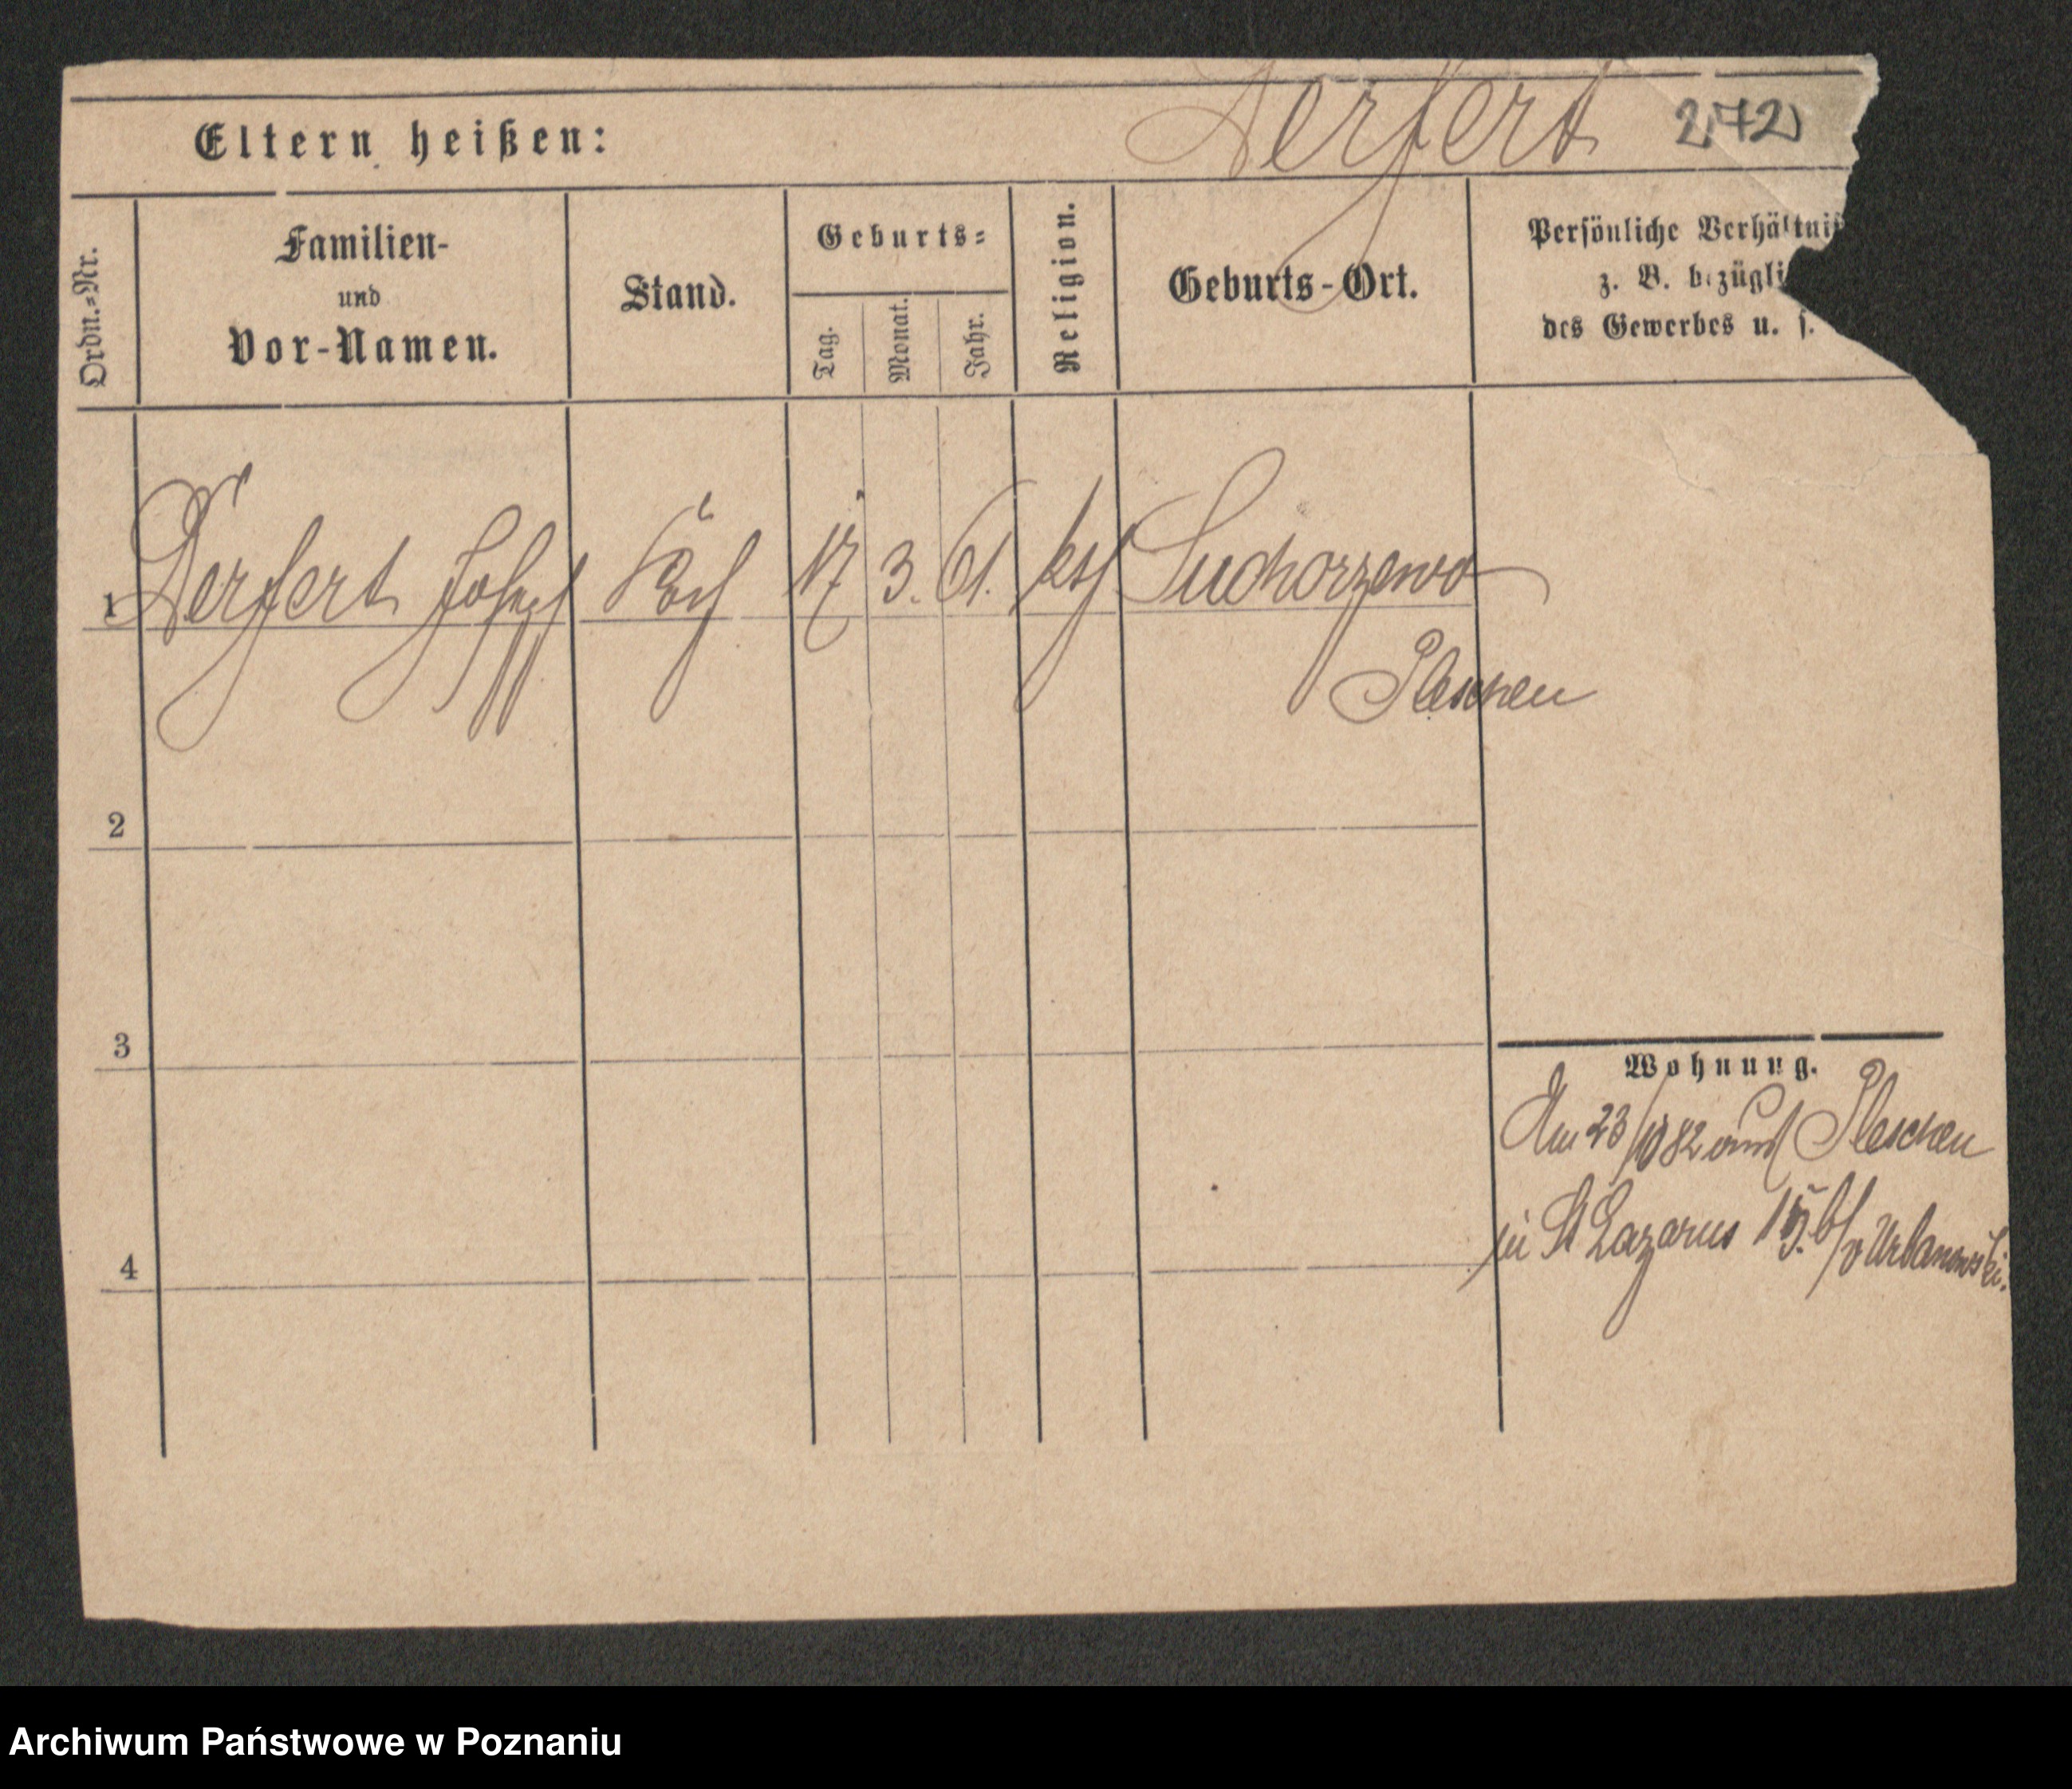 Eltern heißen:
Derfert 272
Ordn.-Nr.
Familien-
und
Vor-Namen.
Stand.
Geburts-
Tag.
Monat.
Jahr.
Religion.
Geburts-Ort.
Persönliche Verhältnis
z. B. bezügli
des Gewerbes u. s.
1 Derfert Joseph Koch 17 3. 61. kth Suchorzewo
Pleschen
2
3
Wohnung.
Am 23/10 82 aus Pleschen
in St Lazarus 15. b/ v Urbanowski.
4
Archiwum Państwowe w Poznaniu